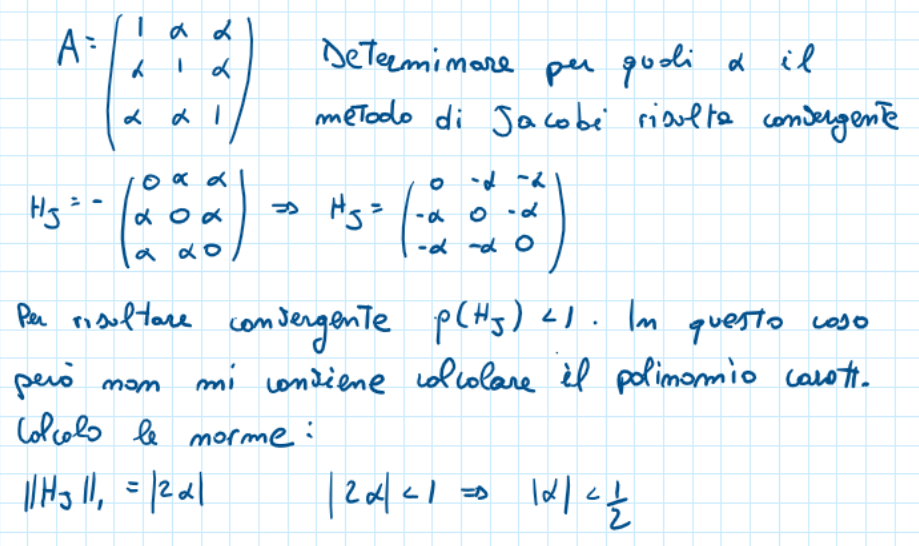 A = ( 1 α α Determinare per quali α il
α 1 α
α α 1 ) metodo di Jacobi risulta convergente
H_J = - ( 0 α α ; α 0 α ; α α 0 ) ⇒ H_J = ( 0 -α -α ; -α 0 -α ; -α -α 0 )
Per risultare convergente ρ(H_J) < 1. In questo caso
però non mi conviene calcolare il polinomio caratt.
Calcolo le norme:
||H_J||₁ = |2α| |2α| < 1 ⇒ |α| < 1/2